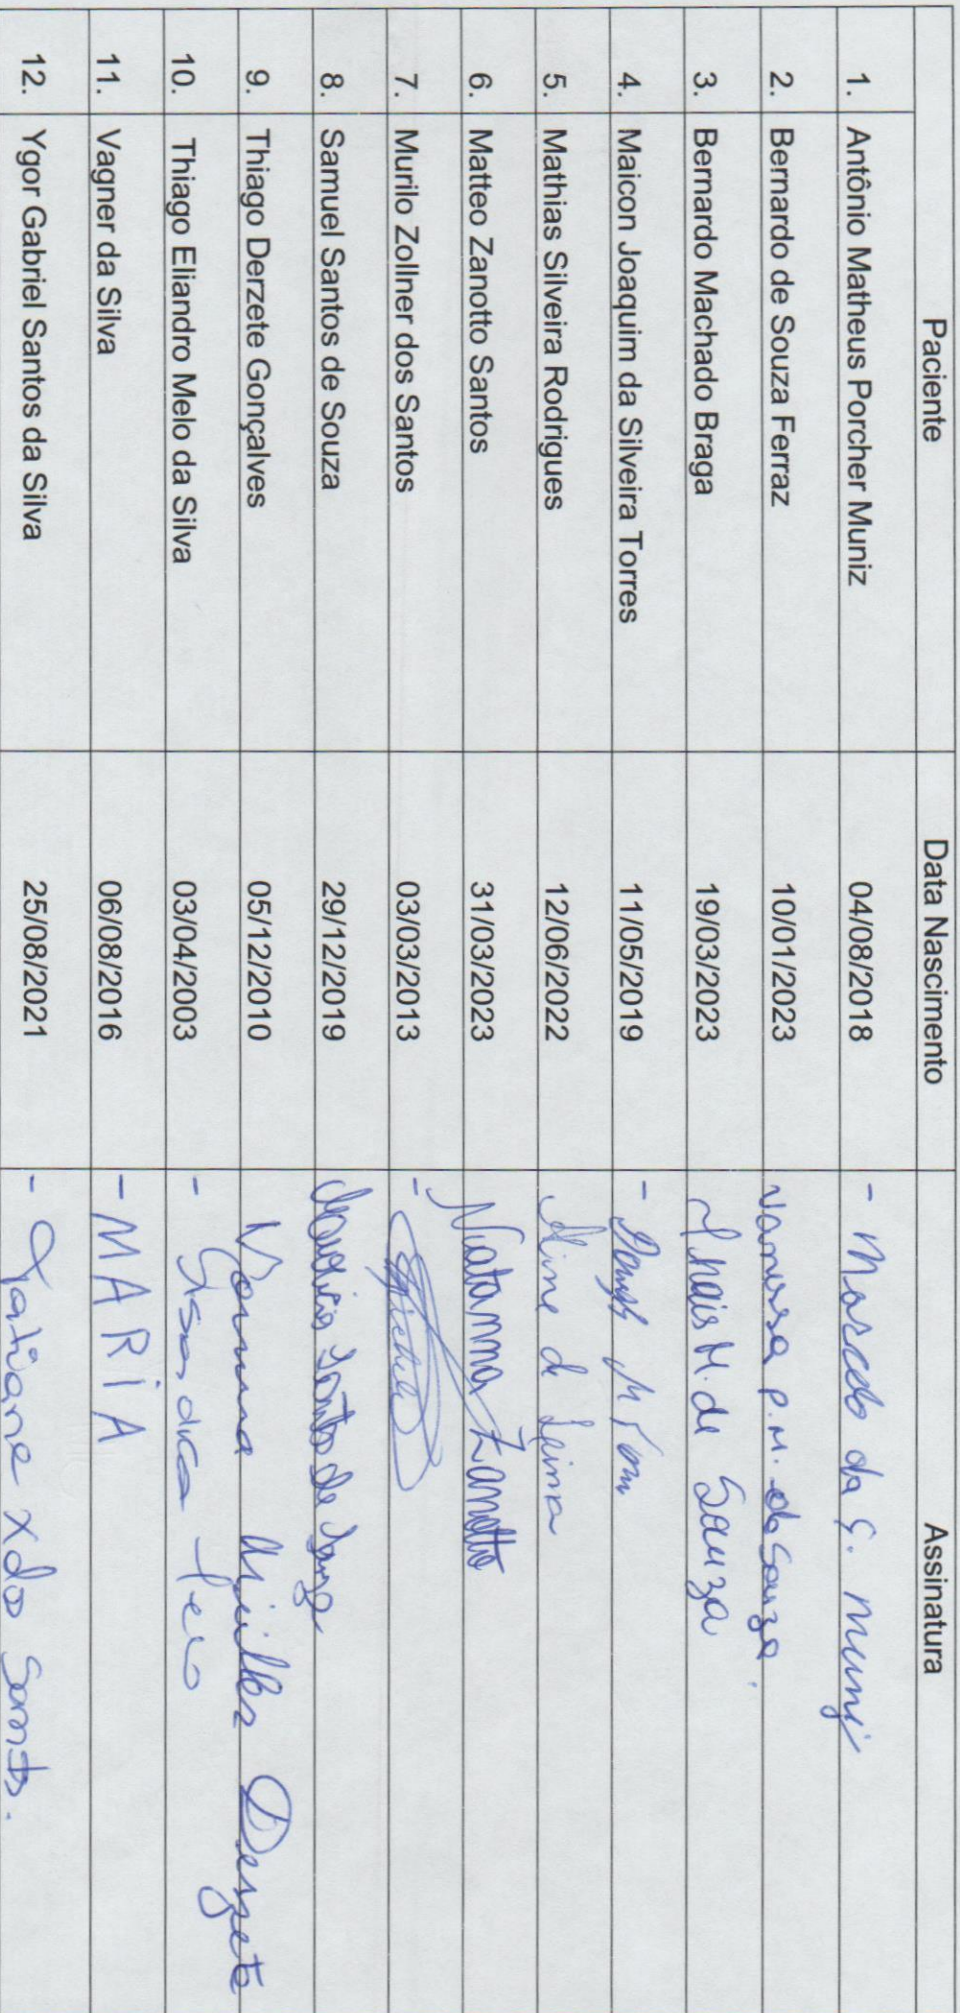 Paciente Data Nascimento Assinatura
1. Antônio Matheus Porcher Muniz 04/08/2018 - Marcelo da S. Muniz
2. Bernardo de Souza Ferraz 10/01/2023 Vanessa P.M. de Souza.
3. Bernardo Machado Braga 19/03/2023 Thais M. de Souza
4. Maicon Joaquim da Silveira Torres 11/05/2019 -
5. Mathias Silveira Rodrigues 12/06/2022 Aline de
6. Matteo Zanotto Santos 31/03/2023 Natanna Zanotto
7. Murilo Zollner dos Santos 03/03/2013 -
8. Samuel Santos de Souza 29/12/2019 Santos de Souza
9. Thiago Derzete Gonçalves 05/12/2010 Derzete
10. Thiago Eliandro Melo da Silva 03/04/2003 -
11. Vagner da Silva 06/08/2016 - MARIA
12. Ygor Gabriel Santos da Silva 25/08/2021 - Tatiane X do Santos.